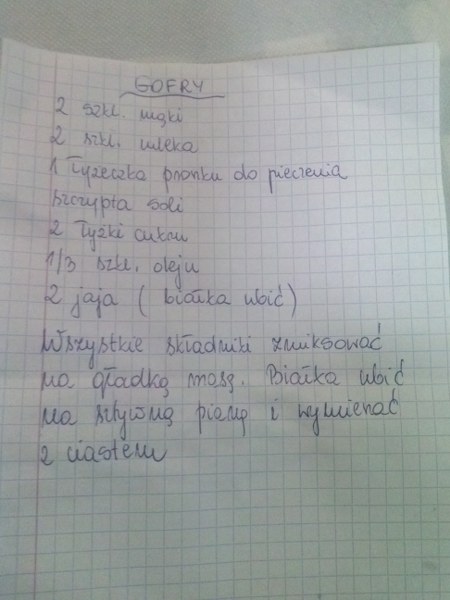 GOFRY
2 szkl. mąki
2 szkl. mleka
1 łyżeczka proszku do pieczenia
szczypta soli
2 łyżki cukru
1/3 szkl. oleju
2 jaja ( białka ubić )
Wszystkie składniki zmiksować
na gładką masę. Białka ubić
na sztywną pianę i wymieszać
z ciastem